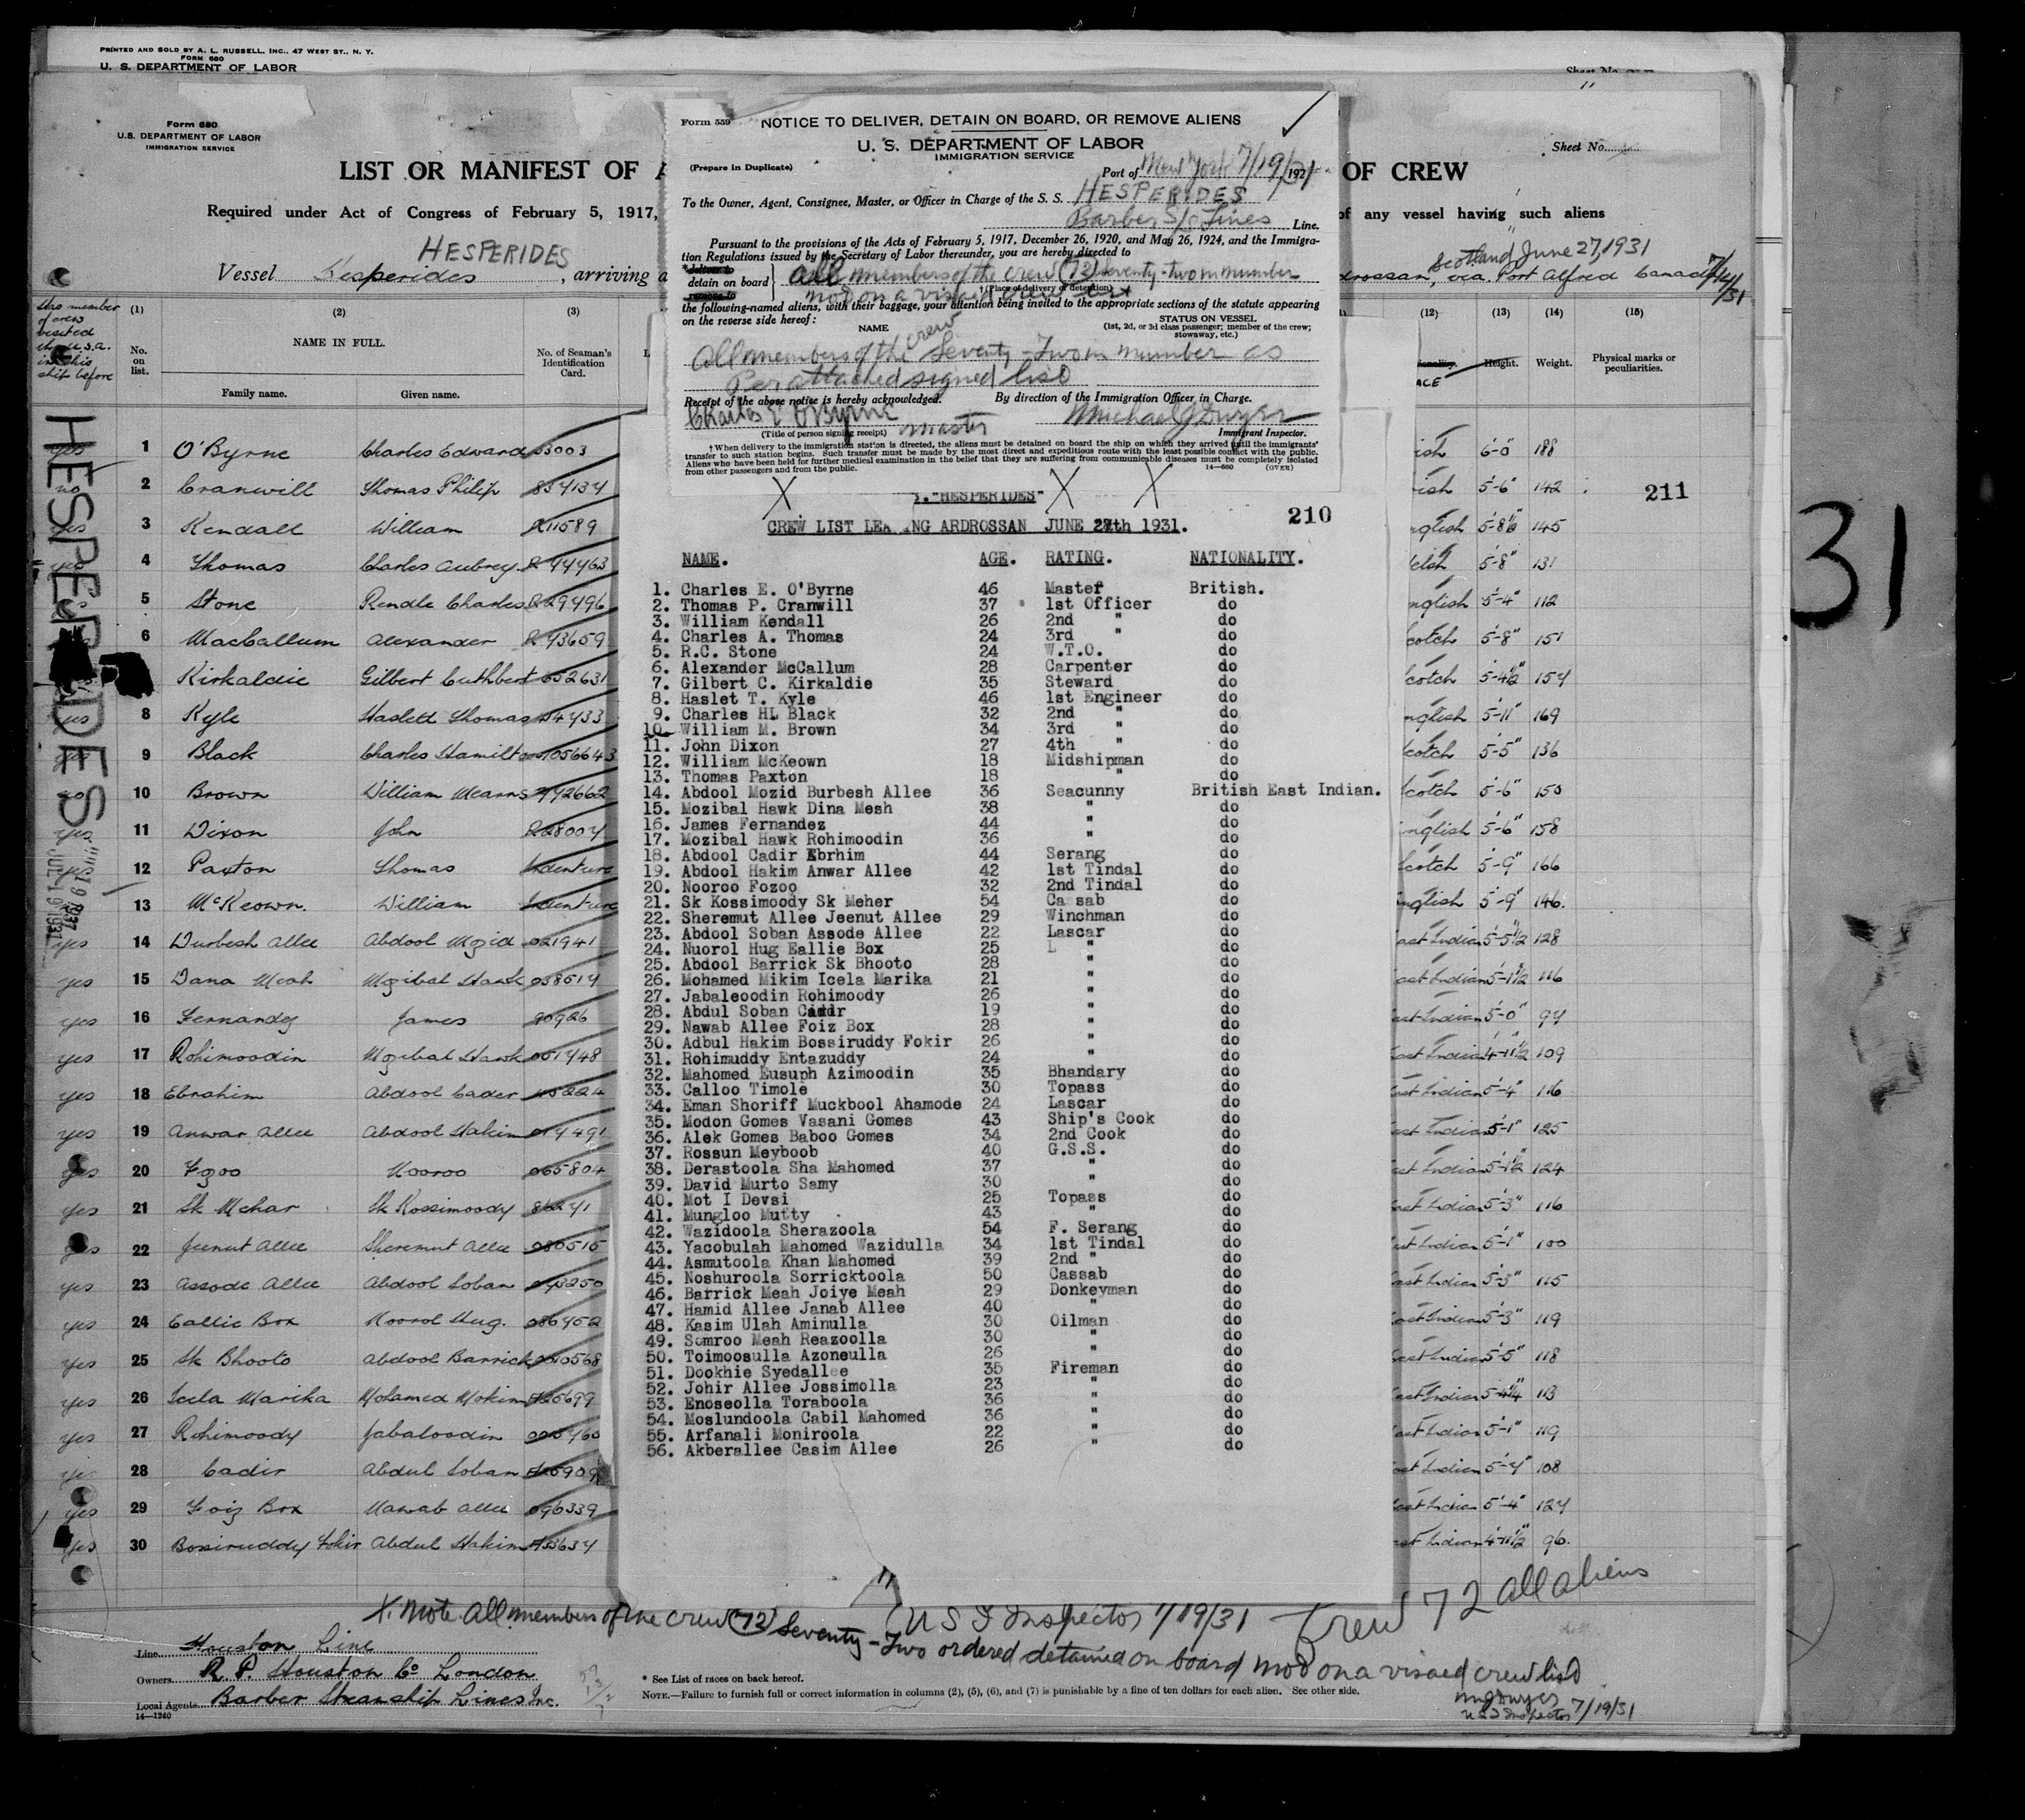 PRINTED AND SOLD BY A. L. RUSSELL, INC., 47 WEST ST., N. Y.
FORM 680
U. S. DEPARTMENT OF LABOR
Form 680
U.S. DEPARTMENT OF LABOR
IMMIGRATION SERVICE
Sheet No.
LIST OR MANIFEST OF A
OF CREW
Required under Act of Congress of February 5, 1917,
of any vessel having such aliens
HESPERIDES
Vessel Hesperides, arriving a
Scotland June 27, 1931
drossan, via Port Alfred Canada 7/14/31
Form 559
NOTICE TO DELIVER, DETAIN ON BOARD, OR REMOVE ALIENS
U. S. DEPARTMENT OF LABOR
IMMIGRATION SERVICE
(Prepare in Duplicate)
Port of New York 7/19/31, 192
To the Owner, Agent, Consignee, Master, or Officer in Charge of the S. S. HESPERIDES
Barber S/S Lines Line.
Pursuant to the provisions of the Acts of February 5, 1917, December 26, 1920, and May 26, 1924, and the Immigra-
tion Regulations issued by the Secretary of Labor thereunder, you are hereby directed to
*deliver to
detain on board
remove to
all members of the crew (72) seventy-two in number
†(Place of delivery of detention)
not on a visaed crew list
the following-named aliens, with their baggage, your attention being invited to the appropriate sections of the statute appearing
on the reverse side hereof:
NAME
STATUS ON VESSEL
(1st, 2d, or 3d class passenger; member of the crew;
stowaway, etc.)
all members of the crew Seventy-Two in number as
Per attached signed list
Receipt of the above notice is hereby acknowledged.
By direction of the Immigration Officer in Charge.
Charles E O'Byrne
Michael J Dwyer
(Title of person signing receipt) Master
Immigrant Inspector.
†When delivery to the immigration station is directed, the aliens must be detained on board the ship on which they arrived until the immigrants'
transfer to such station begins. Such transfer must be made by the most direct and expeditious route with the least possible contact with the public.
Aliens who have been held for further medical examination in the belief that they are suffering from communicable diseases must be completely isolated
from other passengers and from the public.
14—660
(OVER)
X X X
S."HESPERIDES"
CREW LIST LEAVING ARDROSSAN JUNE 27th 1931.
210
211
31
NAME. AGE. RATING. NATIONALITY.
1. Charles E. O'Byrne 46 Master British.
2. Thomas P. Cranwill 37 1st Officer do
3. William Kendall 26 2nd " do
4. Charles A. Thomas 24 3rd " do
5. R.C. Stone 24 W.T.O. do
6. Alexander McCallum 28 Carpenter do
7. Gilbert C. Kirkaldie 35 Steward do
8. Haslet T. Kyle 46 1st Engineer do
9. Charles HL Black 32 2nd " do
10. William M. Brown 34 3rd " do
11. John Dixon 27 4th " do
12. William McKeown 18 Midshipman do
13. Thomas Paxton 18 " do
14. Abdool Mozid Burbesh Allee 36 Seacunny British East Indian.
15. Mozibal Hawk Dina Mesh 38 " do
16. James Fernandez 44 " do
17. Mozibal Hawk Rohimoodin 36 " do
18. Abdool Cadir Ebrhim 44 Serang do
19. Abdool Hakim Anwar Allee 42 1st Tindal do
20. Nooroo Fozoo 32 2nd Tindal do
21. Sk Kossimoody Sk Meher 54 Cassab do
22. Sheremut Allee Jeenut Allee 29 Winchman do
23. Abdool Soban Assode Allee 22 Lascar do
24. Nuorol Hug Eallie Box 25 L " do
25. Abdool Barrick Sk Bhooto 28 " do
26. Mohamed Mikim Icela Marika 21 " do
27. Jabaleoodin Rohimoody 26 " do
28. Abdul Soban Cadir 19 " do
29. Nawab Allee Foiz Box 28 " do
30. Adbul Hakim Bossiruddy Fokir 26 " do
31. Rohimuddy Entazuddy 24 " do
32. Mahomed Eusuph Azimoodin 35 Bhandary do
33. Calloo Timole 30 Topass do
34. Eman Shoriff Muckbool Ahamode 24 Lascar do
35. Modon Gomes Vasani Gomes 43 Ship's Cook do
36. Alek Gomes Baboo Gomes 34 2nd Cook do
37. Rossun Meyboob 40 G.S.S. do
38. Derastoola Sha Mahomed 37 " do
39. David Murto Samy 30 " do
40. Mot I Devsi 25 Topass do
41. Mungloo Mutty 43 " do
42. Wazidoola Sherazoola 54 F. Serang do
43. Yacobulah Mahomed Wazidulla 34 1st Tindal do
44. Asmutoola Khan Mahomed 39 2nd " do
45. Noshuroola Sorricktoola 50 Cassab do
46. Barrick Meah Joiye Meah 29 Donkeyman do
47. Hamid Allee Janab Allee 40 " do
48. Kasim Ulah Aminulla 30 Oilman do
49. Somroo Meah Reazoolla 30 " do
50. Toimoosulla Azoneulla 26 " do
51. Dookhie Syedallee 35 Fireman do
52. Johir Allee Jossimolla 23 " do
53. Enoseolla Toraboola 36 " do
54. Moslundoola Cabil Mahomed 36 " do
55. Arfanali Moniroola 22 " do
56. Akberallee Casim Allee 26 " do
Has member of crew visited the U.S.A. in this ship before
(1) (2) (3) (12) (13) (14) (15)
No. on list.
NAME IN FULL.
Family name. Given name.
No. of Seaman's Identification Card.
Height. Weight. Physical marks or peculiarities.
HESPERIDES
JUL 19 1931
yes 1 O'Byrne Charles Edward 53003 ish 6-0 188
no 2 Cranwill Thomas Philip 834134 ish 5-6" 142
yes 3 Kendall William R11589 nglish 5-8½ 145
yes 4 Thomas Charles Aubrey elsh 5-8" 131
5 Stone Rendle Charles R229496 nglish 5-4" 112
6 MacCallum Alexander R43659 cotch 5-8" 151
Kirkaldie Gilbert Cuthbert 652631 cotch 5-4½ 154
yes 8 Kyle Haslett Thomas nglish 5-11" 169
yes 9 Black Charles Hamilton 1056643 cotch 5-5" 136
no 10 Brown William Mearns 942662 cotch 5-6" 150
yes 11 Dixon John R28004 nglish 5-6" 158
yes 12 Paxton Thomas Indenture cotch 5-9" 166
13 McKeown. William Indenture nglish 5-9" 146.
yes 14 Durbesh Allee Abdool Mozid 021941 East Indian 5-5½ 128
yes 15 Dana Meah Mozibal Hawk 038514 East Indian 5-1½ 116
yes 16 Fernandez James 90926 East Indian 5-0" 94
yes 17 Rohimoodin Mozibal Hawk 051448 East Indian 4-11½ 109
yes 18 Ebrahim Abdool Cader 45224 East Indian 5-4" 116
yes 19 Anwar Allee Abdool Hakim 014491 East Indian 5-1" 125
yes 20 Fozoo Nooroo 065804 East Indian 5-1½ 124
yes 21 Sk Mehar Sk Kossimoody 86241 East Indian 5-3" 116
yes 22 Jeenut Allee Sheremut Allee 080515 East Indian 5-1" 100
yes 23 Assode Allee Abdool Soban 043250 East Indian 5-3" 115
yes 24 Eallie Box Noorol Hug. 086452 East Indian 5-3" 119
yes 25 Sk Bhooto Abdool Barrick East Indian 5-5" 118
yes 26 Icela Marika Mohamed Mokim East Indian 5-4¼ 113
yes 27 Rohimoody Jabaloodin East Indian 5-1" 119
yes 28 Cadir Abdul Soban East Indian 5-4" 108
yes 29 Foiz Box Nawab Allee 096339 East Indian 5-4" 124
yes 30 Bossiruddy Fokir Abdul Hakim East Indian 4-11½ 96.
X. Note. All members of the crew (72) Seventy-Two ordered detained on board not on a visaed crew list
U S I Inspector 7/19/31
Crew 72 all aliens
MJ Dwyer
U S I Inspector 7/19/31
Line Houston Line
Owners R. P. Houston Co London
Local Agents Barber Steamship Lines Inc.
14—1240
* See List of races on back hereof.
NOTE.—Failure to furnish full or correct information in columns (2), (5), (6), and (7) is punishable by a fine of ten dollars for each alien. See other side.